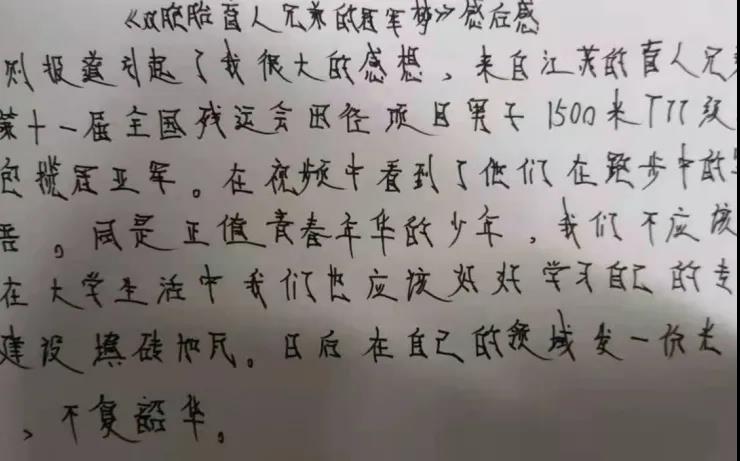 《双胞胎盲人兄弟的冠军梦》感后感
则报道引起了我很大的感想，来自江苏的盲人兄
第十一届全国残运会田径项目男子1500米T11级
包揽冠亚军。在视频中看到了他们在跑步中的
。同是正值青春年华的少年，我们不应该
在大学生活中我们也应该好好学习自己的专
建设填砖加瓦。日后在自己的领域发一份光
、不复韶华。